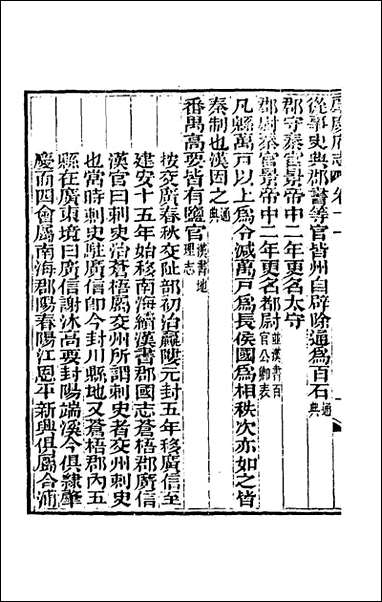 肇慶府志卷十一
從事史典郡書等官皆州自辟除通為百石通典
郡守秦官景帝中二年更名太守
郡尉秦官景帝中二年更名都尉並漢書百官公卿表
凡縣萬戶以上為令減萬戶為長侯國為相秩次亦如之皆
秦制也漢因之通典
番禺高要皆有鹽官漢書地理志
按交廣春秋交阯部初治羸𨻻元封五年移廣信至
建安十五年始移南海續漢書郡國志蒼梧郡廣信
漢官曰刺史治蒼梧屬交州所謂刺史者交州刺史
也當時刺史駐廣信即今封川縣地又蒼梧郡內五
縣在廣東境曰廣信謝沐高要封陽端溪今俱隷肇
慶而四會屬南海郡陽春陽江恩平新興俱屬合浦